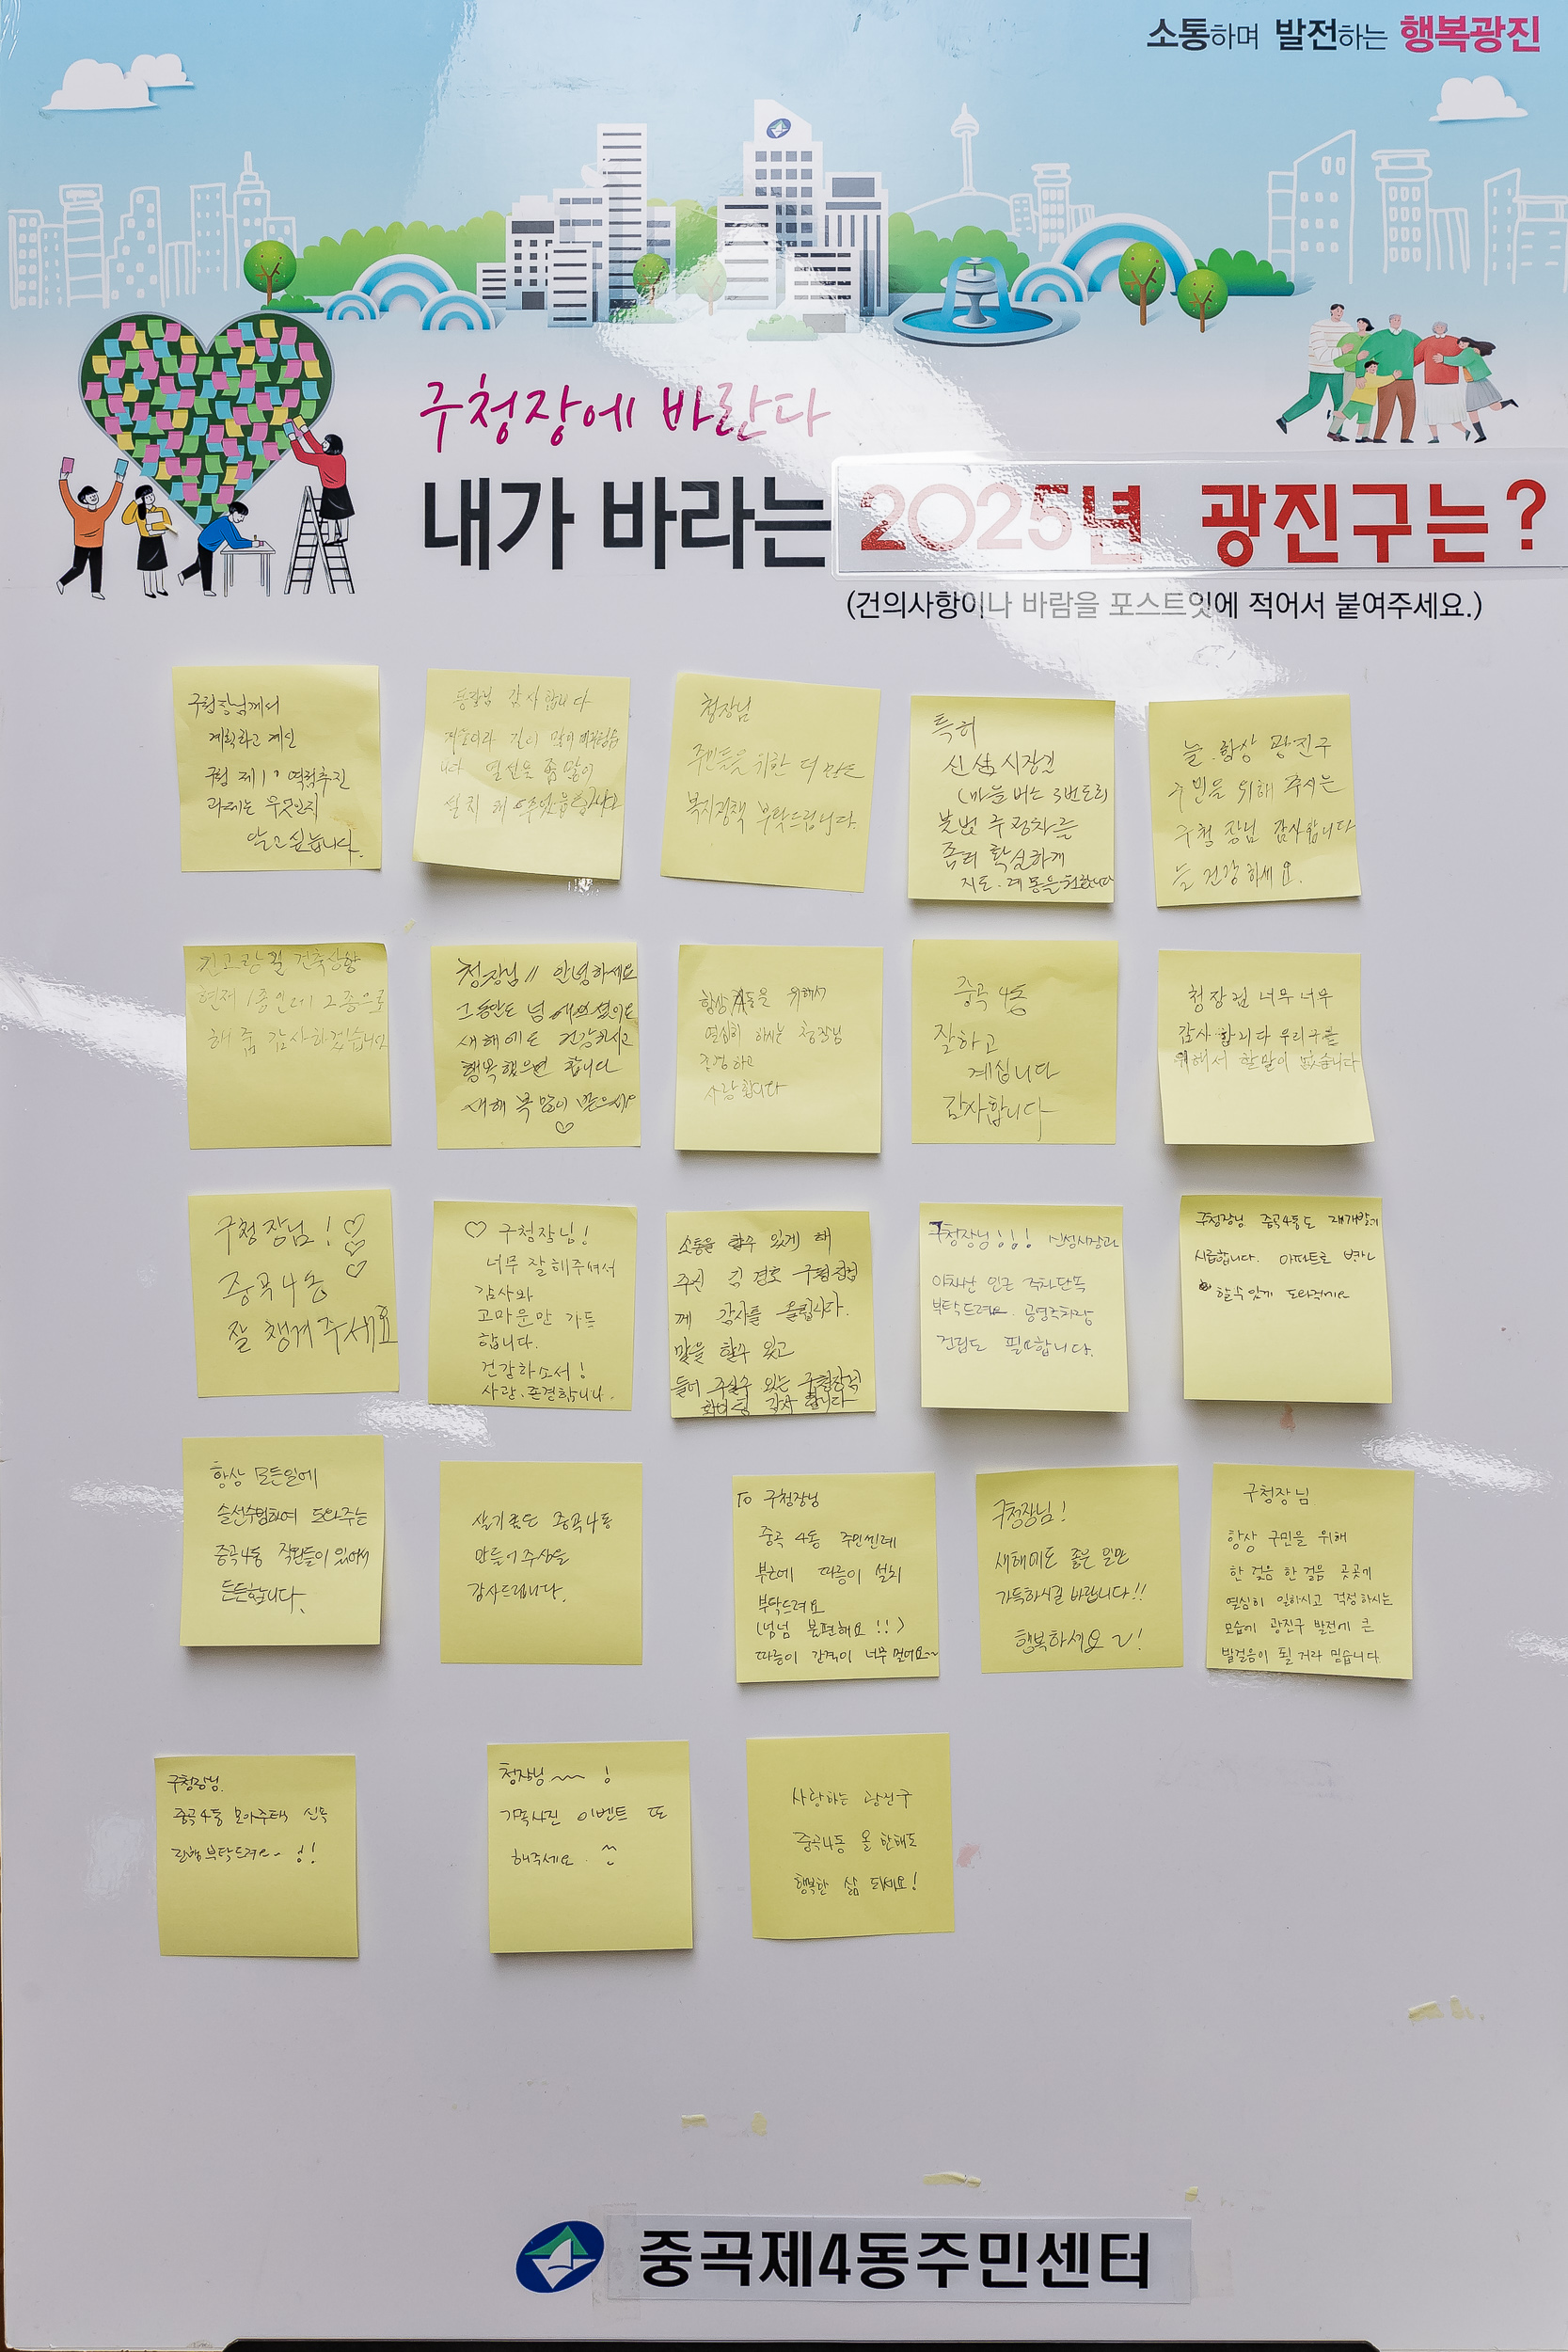 소통하며 발전하는 행복광진
구청장에 바란다
내가 바라는 2025년 광진구는?
(건의사항이나 바람을 포스트잇에 적어서 붙여주세요.)
구청장님께서
계획하고 계신
구청 제1 역점추진
과제는 무엇인지
알고싶습니다.
동장님 감사합니다
길이 많이
열선을 좀 많이
설치 해
청장님
주민들을 위한 더 많은
복지정책 부탁드립니다.
특히
신성시장길
(마을버스 3번도로)
불법 주정차를
좀더 확실하게
지도·계몽을 원합니다
늘 항상 광진구
구민을 위해 주시는
구청장님 감사합니다
늘 건강하세요.
긴고랑길 건축상황
현재 1종인데 2종으로
해 줌 감사하겠습니다
청장님!! 안녕하세요
그동안도 넘
새해에도 건강하시고
행복했으면 합니다
새해 복 많이 받으세요
♡
항상 을 위해서
열심히 하시는 청장님
존경하고
사랑합니다
중곡4동
잘하고
계십니다
감사합니다
청장님 너무너무
감사합니다 우리구를
위해서 할말이 없습니다
구청장님! ♡
♡
♡
중곡4동
잘 챙겨주세요
♡ 구청장님!
너무 잘해주셔서
감사와
고마운만 가득
합니다.
건강하소서!
사랑.존경합니다.
소통을 할수 있게 해
주신 김경호 구청장님
께 감사를 올립니다.
말을 할수 있고
들어 주실수 있는 구청장님
화이팅 감사 합니다
구청장님!!! 신성시장과
야채난 인근 주차단속
부탁드려요. 공영주차장
건립도 필요합니다.
구청장님 중곡4동도 재개발이
시급합니다. 아파트로 변화
할수있게 도와주세요
항상 모든일에
솔선수범하여 도와주는
중곡4동 직원들이 있어서
든든합니다.
살기좋은 중곡4동
만들어주심을
감사드립니다.
To 구청장님
중곡 4동 주민센터
부근에 따릉이 설치
부탁드려요
(넘넘 불편해요!!)
따릉이 간격이 너무 멀어요~
구청장님!
새해에도 좋은 일만
가득하시길 바랍니다!!
행복하세요~!
구청장님.
항상 구민을 위해
한 걸음 한 걸음 곳곳에
열심히 일하시고 걱정하시는
모습에 광진구 발전에 큰
발걸음이 될 거라 믿습니다
구청장님.
중곡4동 모아주택 신속
진행부탁드려요~ !!
청장님~~ !
가족사진 이벤트 또
해주세요. ^^
사랑하는 광진구
중곡4동 올 한해도
행복한 삶 되세요!
중곡제4동주민센터